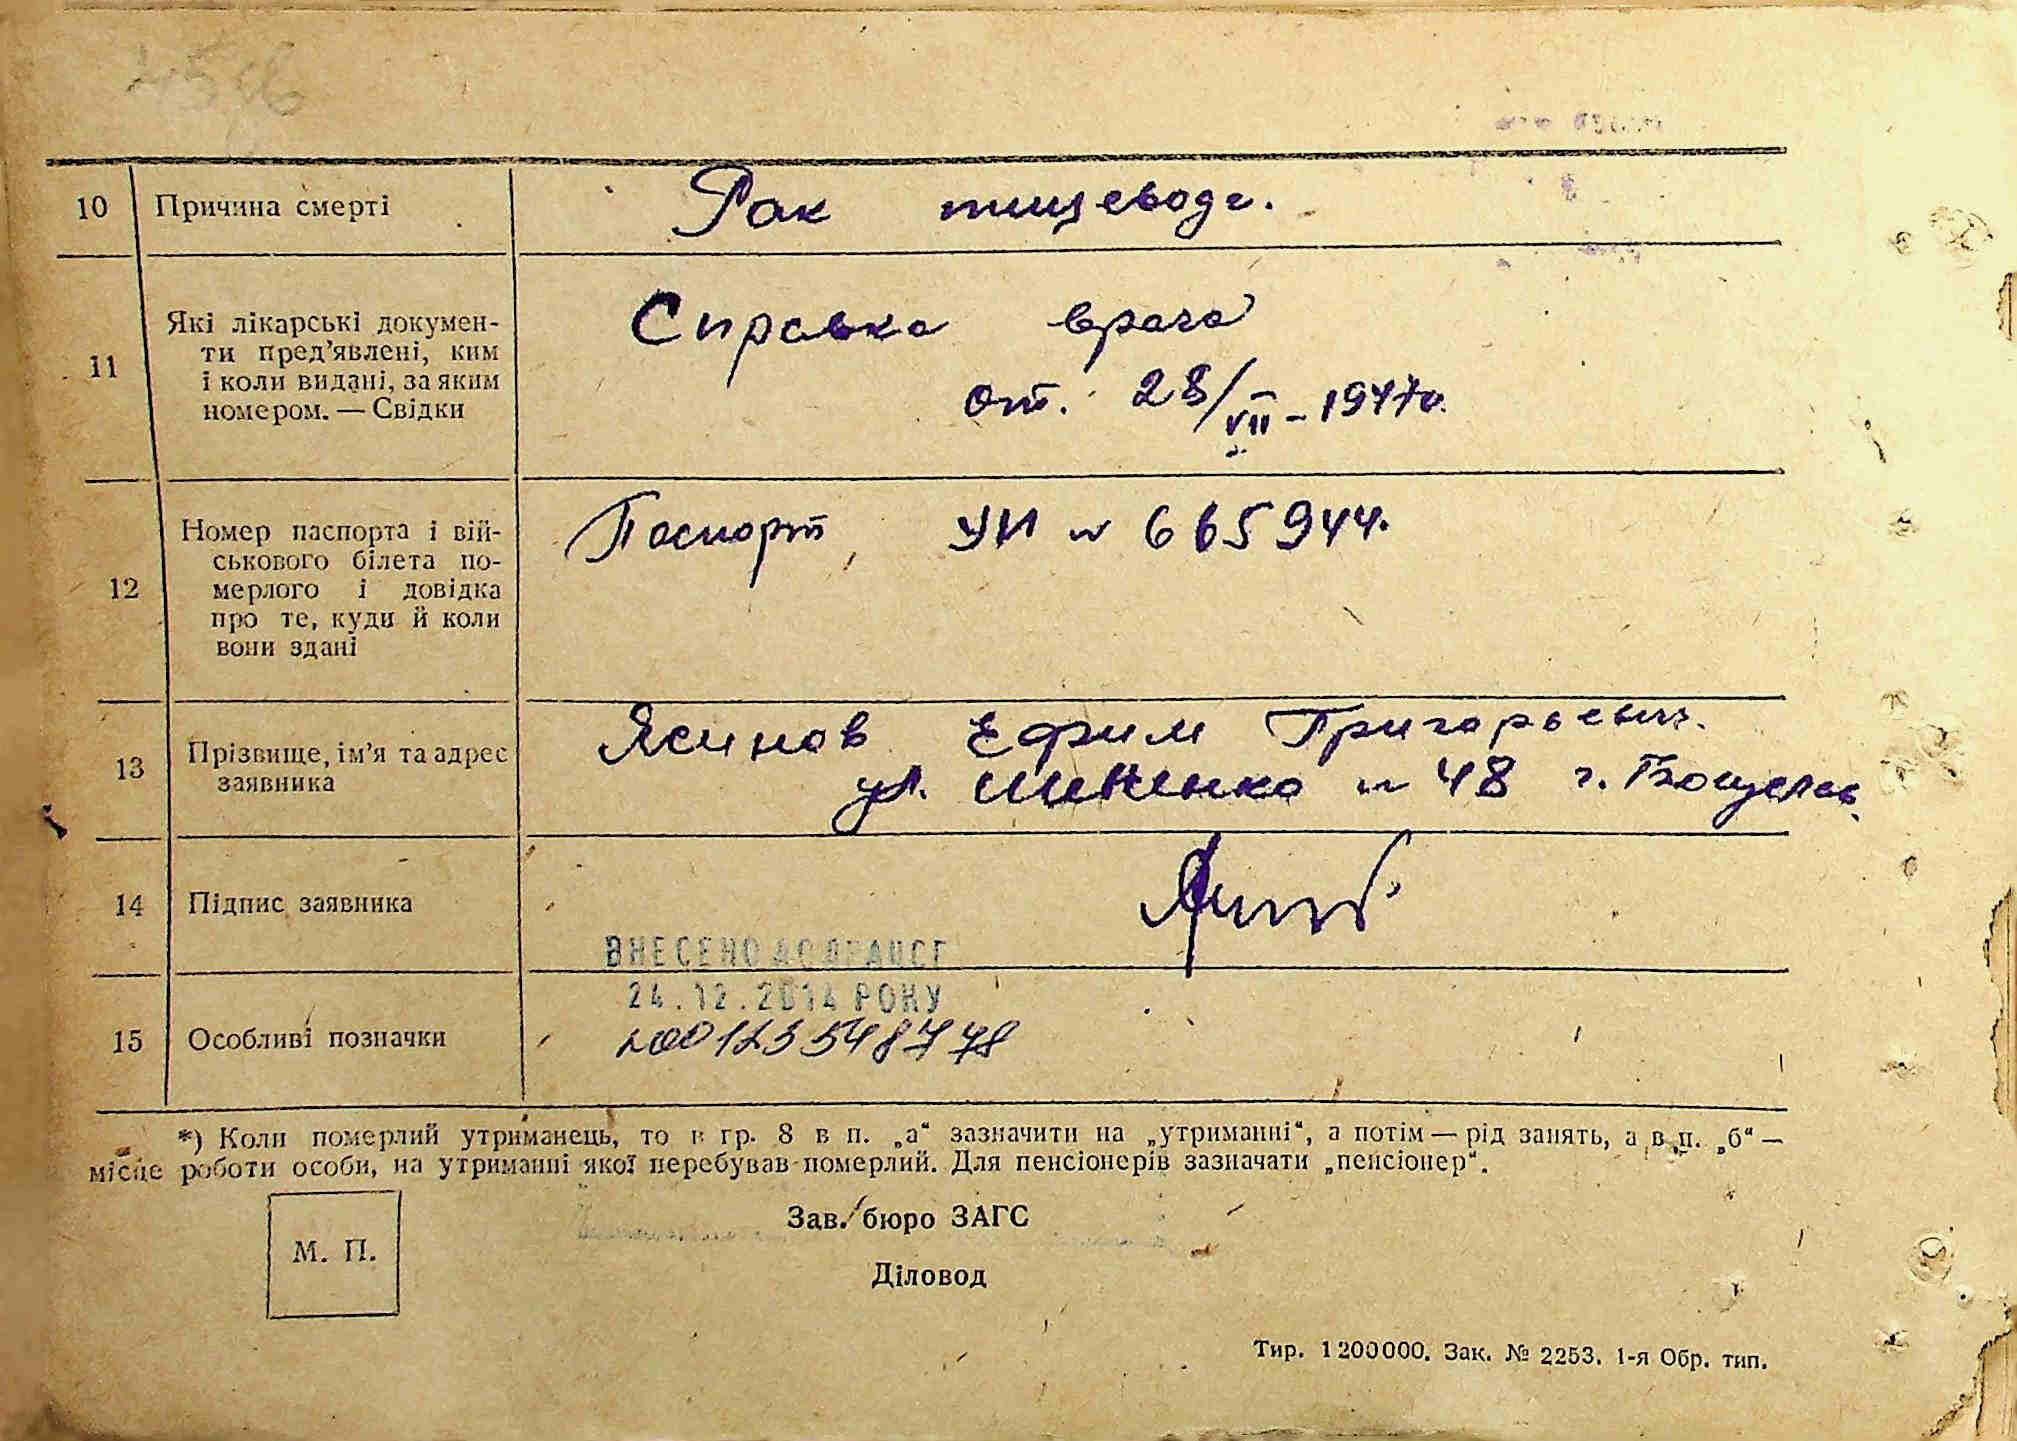 10 Причина смерті Рак пищевода.
11 Які лікарські докумен-
ти пред'явлені, ким
і коли видані, за яким
номером. — Свідки
Справка врача
от. 28/VII - 1947г.
12 Номер паспорта і вій-
ськового білета по-
мерлого і довідка
про те, куди й коли
вони здані
Паспорт УИ № 665944.
13 Прізвище, ім'я та адрес
заявника
Ясинов Ефим Григорьевич.
ул. № 48 г. Богуслав.
14 Підпис заявника
ВНЕСЕНО ДО ДРАЦСГ
24.12.2014 РОКУ
15 Особливі позначки 00123548778
*) Коли померлий утриманець, то в гр. 8 в п. „а“ зазначити на „утриманні“, а потім — рід занять, а в п. „б“ —
місце роботи особи, на утриманні якої перебував померлий. Для пенсіонерів зазначати „пенсіонер“.
М. П.
Зав. бюро ЗАГС
Діловод
Тир. 1200000. Зак. № 2253. 1-я Обр. тип.